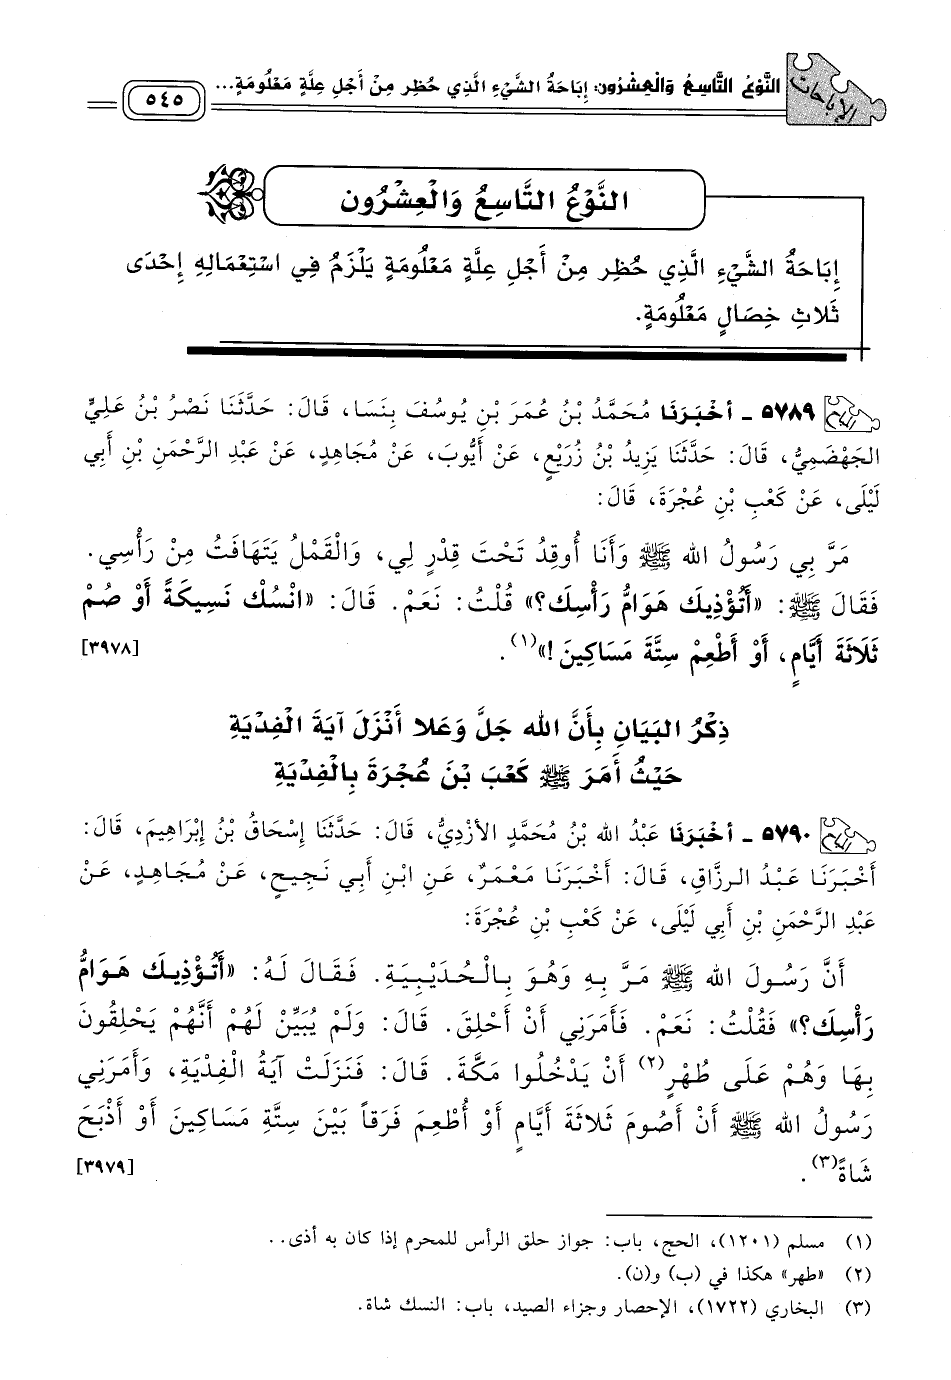 الإباحات
النَّوْعُ التَّاسِعُ وَالْعِشْرُون: إِبَاحَةُ الشَّيْءِ الَّذِي حُظِر مِنْ أَجْلِ عِلَّةٍ مَعْلُومَةٍ...
٥٤٥
النَّوْعُ التَّاسِعُ وَالْعِشْرُون
إِبَاحَةُ الشَّيْءِ الَّذِي حُظِر مِنْ أَجْلِ عِلَّةٍ مَعْلُومَةٍ يَلْزَمُ فِي اسْتِعْمَالِهِ إِحْدَى
ثَلَاثِ خِصَالٍ مَعْلُومَةٍ.
٥٧٨٩ - أَخْبَرَنَا مُحَمَّدُ بْنُ عُمَرَ بْنِ يُوسُفَ بِنَسَا، قَالَ: حَدَّثَنَا نَصْرُ بْنُ عَلِيٍّ
الجَهْضَمِيُّ، قَالَ: حَدَّثَنَا يَزِيدُ بْنُ زُرَيْعٍ، عَنْ أَيُّوبَ، عَنْ مُجَاهِدٍ، عَنْ عَبْدِ الرَّحْمَنِ بْنِ أَبِي
لَيْلَى، عَنْ كَعْبِ بْنِ عُجْرَةَ، قَالَ:
مَرَّ بِي رَسُولُ الله ﷺ وَأَنَا أُوقِدُ تَحْتَ قِدْرٍ لِي، وَالْقَمْلُ يَتَهَافَتُ مِنْ رَأْسِي.
فَقَالَ ﷺ: «أَتُؤْذِيكَ هَوَامُّ رَأْسِكَ؟» قُلْتُ: نَعَمْ. قَالَ: «انْسُكْ نَسِيكَةً أَوْ صُمْ
ثَلَاثَةَ أَيَّامٍ، أَوْ أَطْعِمْ سِتَّةَ مَسَاكِينَ!»(١). [٣٩٧٨]
ذِكْرُ البَيَانِ بِأَنَّ الله جَلَّ وَعَلا أَنْزَلَ آيَةَ الْفِدْيَةِ
حَيْثُ أَمَرَ ﷺ كَعْبَ بْنَ عُجْرَةَ بِالْفِدْيَةِ
٥٧٩٠ - أَخْبَرَنَا عَبْدُ الله بْنُ مُحَمَّدٍ الأَزْدِيُّ، قَالَ: حَدَّثَنَا إِسْحَاقُ بْنُ إِبْرَاهِيمَ، قَالَ:
أَخْبَرَنَا عَبْدُ الرزَّاقِ، قَالَ: أَخْبَرَنَا مَعْمَرٌ، عَنِ ابْنِ أَبِي نَجِيحٍ، عَنْ مُجَاهِدٍ، عَنْ
عَبْدِ الرَّحْمَنِ بْنِ أَبِي لَيْلَى، عَنْ كَعْبِ بْنِ عُجْرَةَ:
أَنَّ رَسُولَ الله ﷺ مَرَّ بِهِ وَهُوَ بِالْحُدَيْبِيَةِ. فَقَالَ لَهُ: «أَتُؤْذِيكَ هَوَامُّ
رَأْسِكَ؟» فَقُلْتُ: نَعَمْ. فَأَمَرَنِي أَنْ أَحْلِقَ. قَالَ: وَلَمْ يُبَيِّنْ لَهُمْ أَنَّهُمْ يَحْلِقُونَ
بِهَا وَهُمْ عَلَى طُهْرٍ(٢) أَنْ يَدْخُلُوا مَكَّةَ. قَالَ: فَنَزَلَتْ آيَةُ الْفِدْيَةِ، وَأَمَرَنِي
رَسُولُ الله ﷺ أَنْ أَصُومَ ثَلَاثَةَ أَيَّامٍ أَوْ أُطْعِمَ فَرَقاً بَيْنَ سِتَّةِ مَسَاكِينَ أَوْ أَذْبَحَ
شَاةً(٣). [٣٩٧٩]
(١) مسلم (١٢٠١)، الحج، باب: جواز حلق الرأس للمحرم إذا كان به أذى..
(٢) «طهر» هكذا في (ب) و(ن).
(٣) البخاري (١٧٢٢)، الإحصار وجزاء الصيد، باب: النسك شاة.